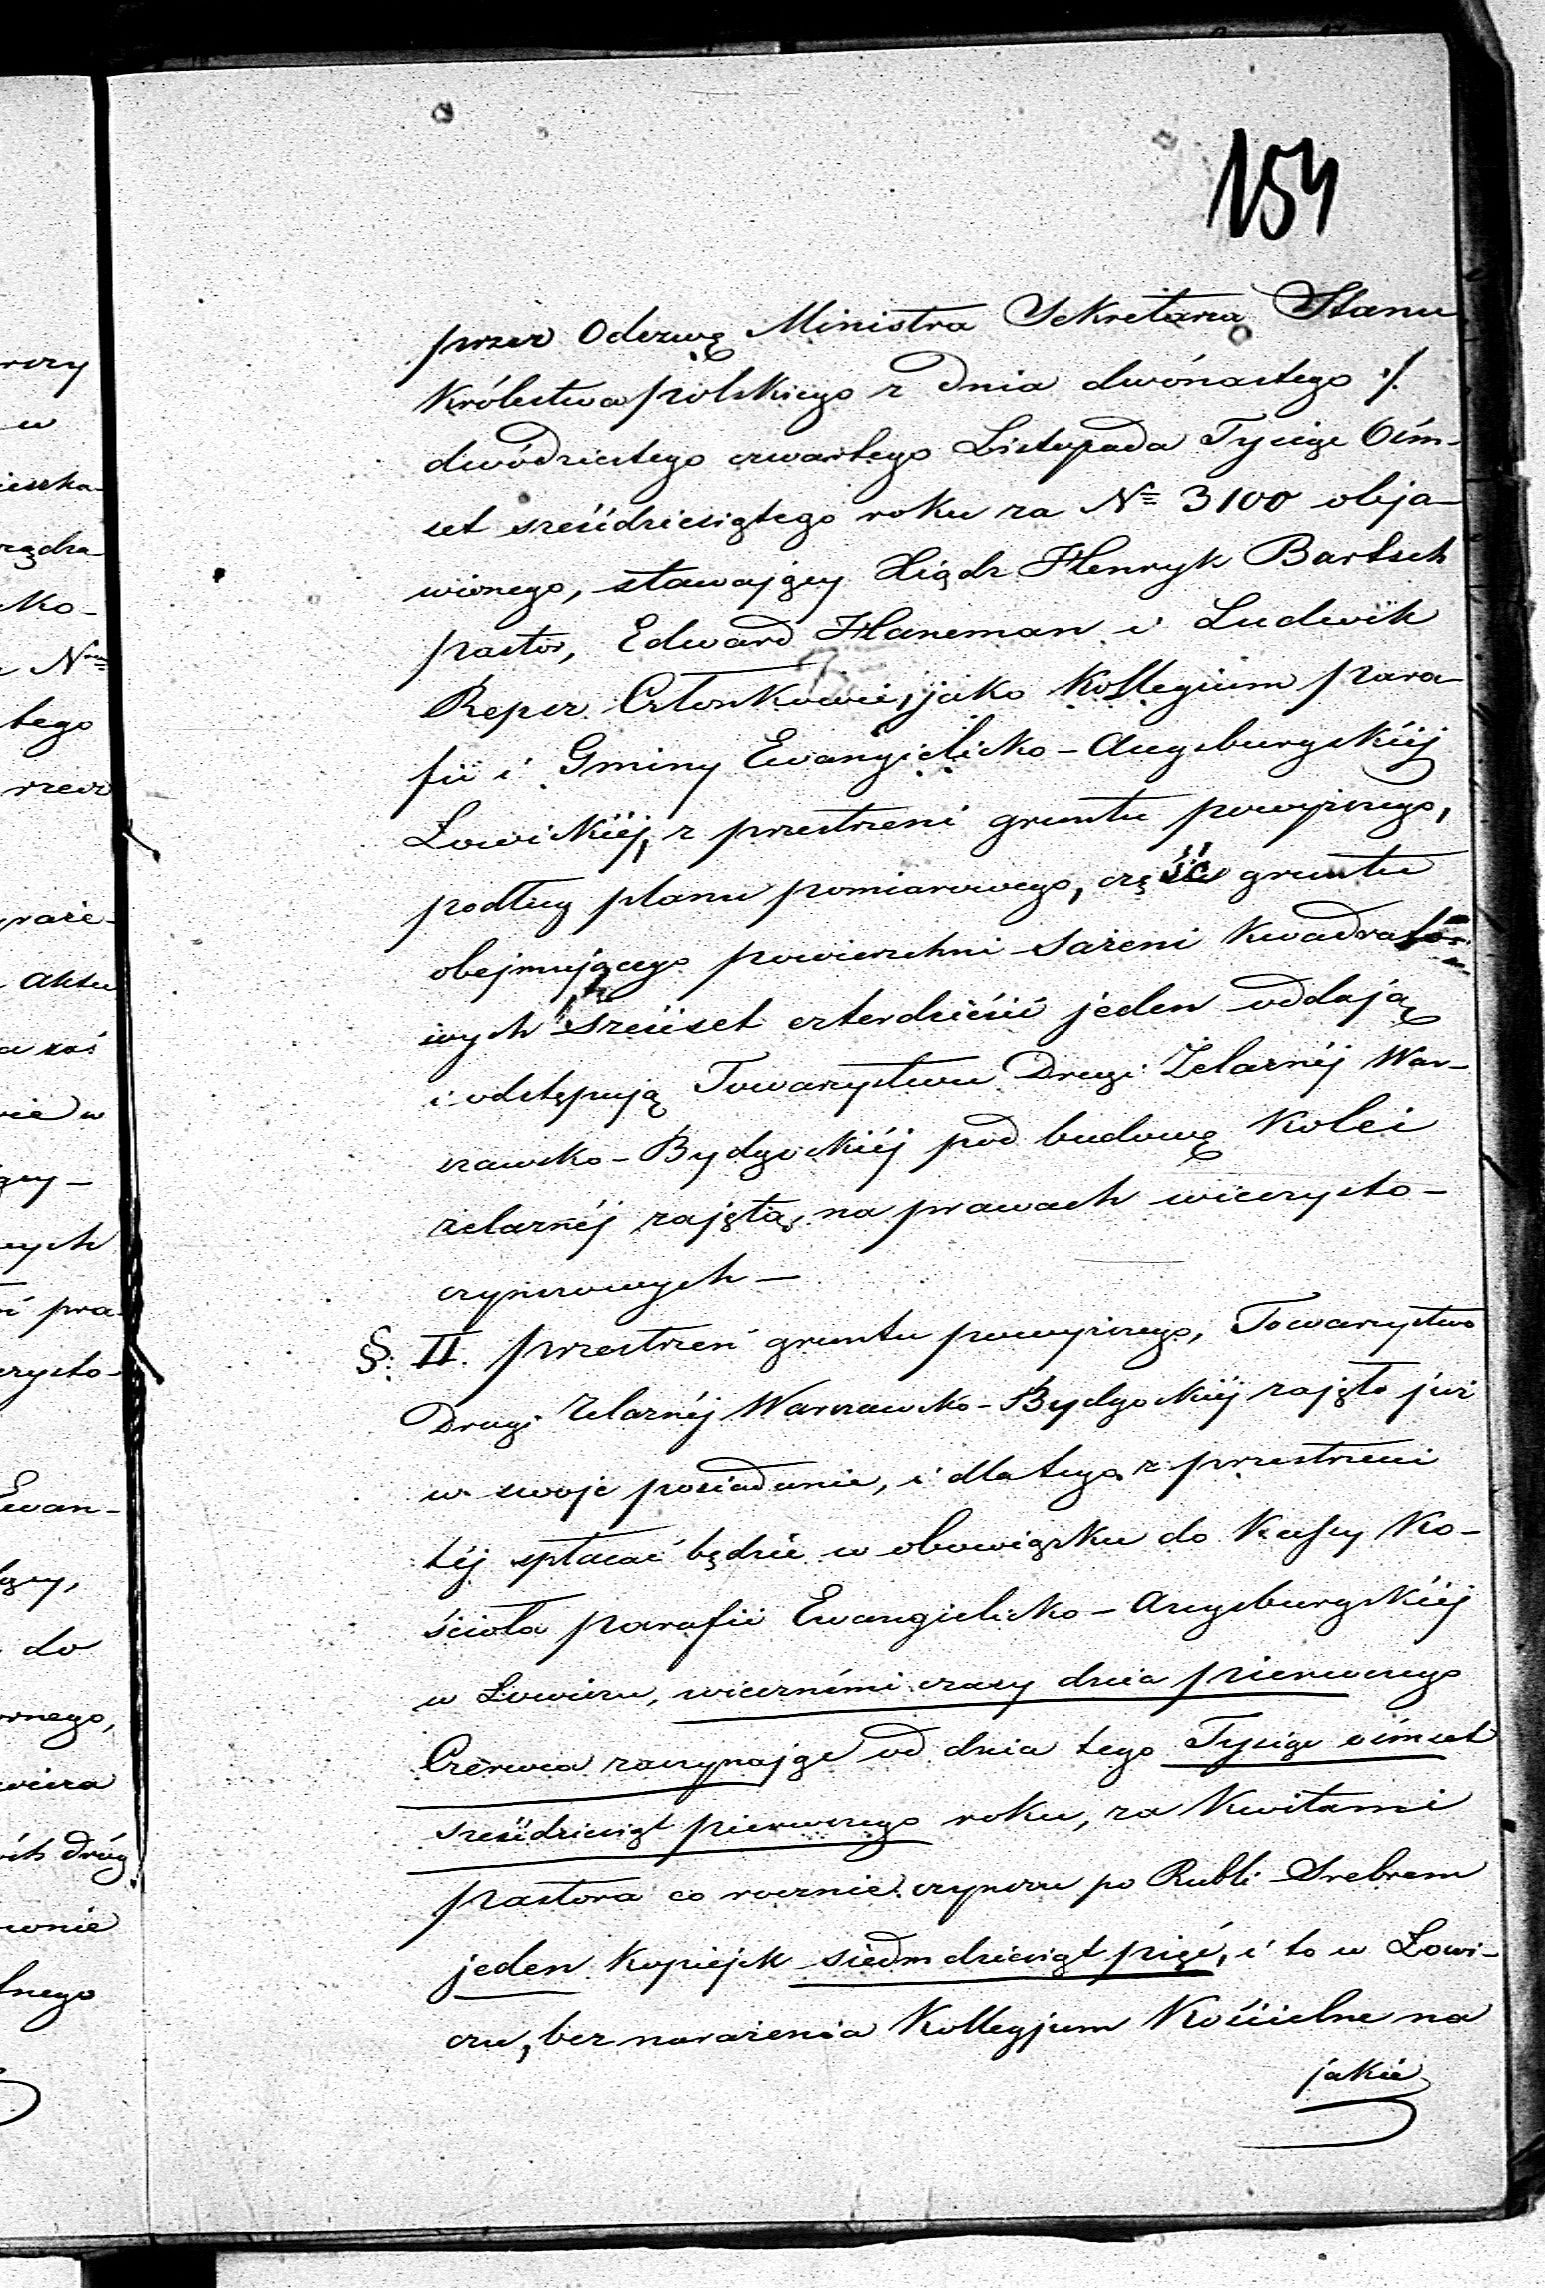 154
przez Odezwę Ministra Sekretarza Stanu
Królestwa polskiego z dnia dwónastego /.
dwódziestego czwartego Listopada Tysiąc Ośm-
set sześćdziesiątego roku za Nº 3100 obja-
wionego, stawający Xiądz Henryk Bartsch
pastor, Edward Haneman i Ludwik
Członkowie, jako Kollegium para-
fii i Gminy Ewangielicko-Augsburgskiéj
Łowickiéj, z przestrzeni gruntu powyższego,
podług planu pomiarowego, część gruntu
obejmującego powierzchni sażeni kwadrato-
wych sześćset czterdzieści jeden oddają
i odstępują Towarzystwu Drogi Żelaznéj War-
szawsko-Bydgockiéj pod budowę Kolei
żelaznéj zajętą, na prawach wieczysto-
czynszowych —
§: II. przestrzeń gruntu powyższego, Towarzystwo
Drogi żelaznéj Warszawsko-Bydgockiéj zajęło już
w swoje posiadanie, i dla tego z przestrzeni
téj spłacać będzie w obowiązku do Kassy Ko-
ścioła parafii Ewangielicko-Augsburgskiéj
w Łowiczu, wiecznémi czasy dnia pierwszego
Czerwca zaczynając od dnia tego Tysiąc ośmset
sześćdziesiąt pierwszego roku, za Kwitami
pastora co rocznie czynszu po Rubli Srebrem
jeden Kopiejek siedmdziesiąt pięć, i to w Łowi-
czu, bez narażenia Kollegjum Kościelne na
jakie